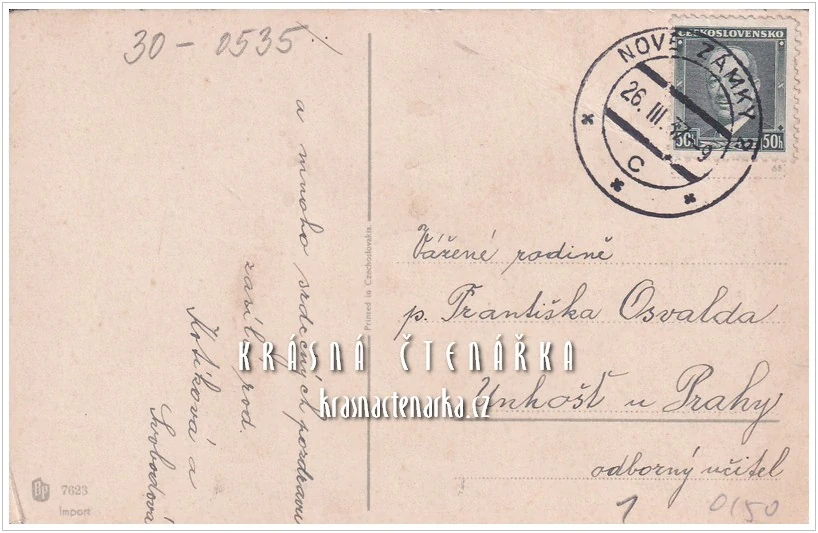 30-0535
a mnoho srdečných pozdravů
zasílá rod.
Kotíková a
Svobodová
BP 7623
Import
Printed in Czechoslovakia
ČESKOSLOVENSKO
50h 50h
NOVÉ ZÁMKY
26. III. 37 -9
C
Vážené rodině
p. Františka Osvalda
Unhošť u Prahy
odborný učitel
1 0150
KRÁSNÁ ČTENÁŘKA
krasnactenarka.cz